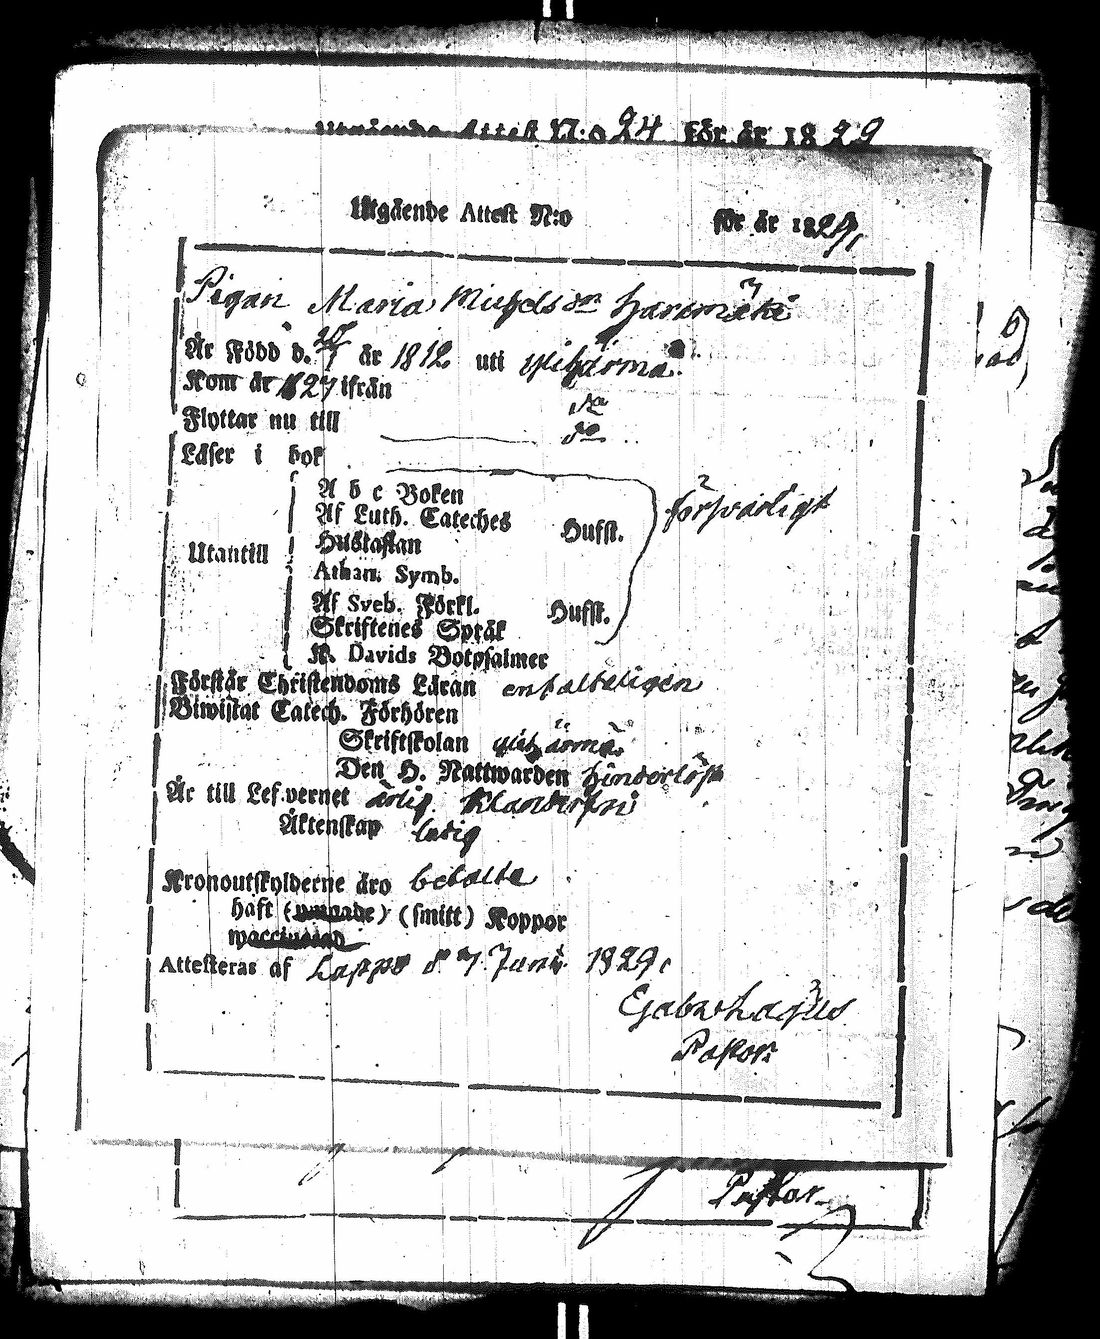 Utgående Attest N:o 24 för år 1829
Utgående Attest N:o för år 1829
Pigan Maria Michelsdr Harjmäki
Är Född d. 27/7 år 1812 uti Ylihärmä
Kom år 1827 ifrån do
Flyttar nu till do
Läser i bok
A b c Boken
Af Luth. Cateches Hufst. försvarligt
Hustaflan
Utantill
Athan. Symb.
Af Sveb. Förkl. Hufst.
Skriftenes Språk
K. Davids Botpsalmer
Förstår Christendoms Läran enfalteligen
Biwistat Catech. Förhören
Skriftskolan Ylihärmä
Den H. Nattwarden hinderlöst
Är till Lefvernet ärlig
Äktenskap ledig
Kronoutskylderne äro betalte
haft (smitt) Koppor
Attesteras af Lappo d 7 Junii 1829
Pastor
Pastor